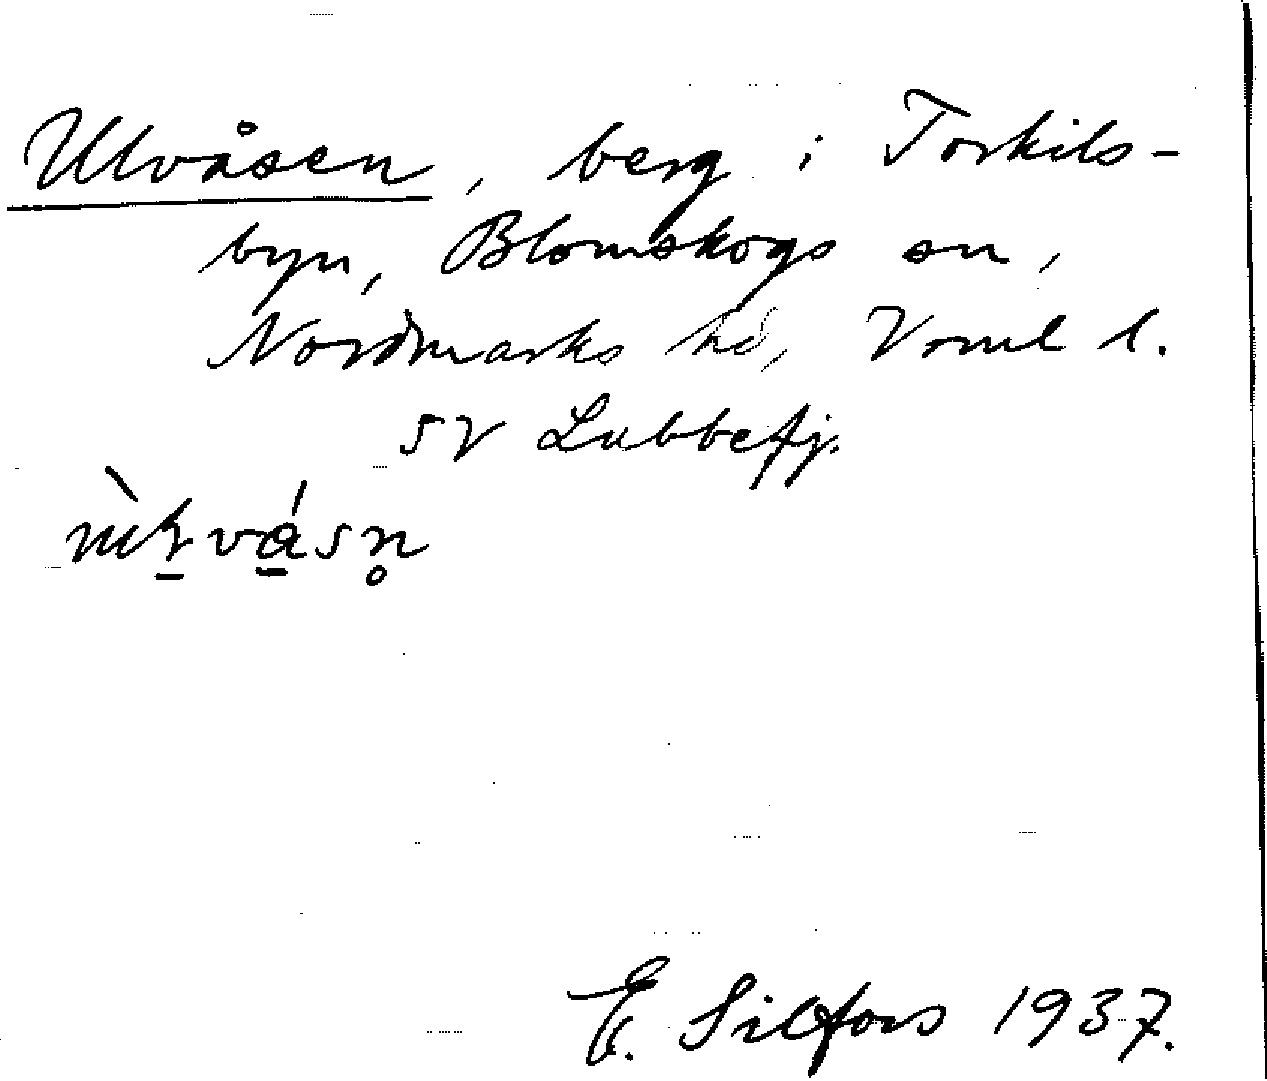 Ulvåsen, berg i Torkils-
byn, Blomskogs sn,
Nordmarks hd, Vrml l.
SV Lubbefj.
E. Silfors 1937.